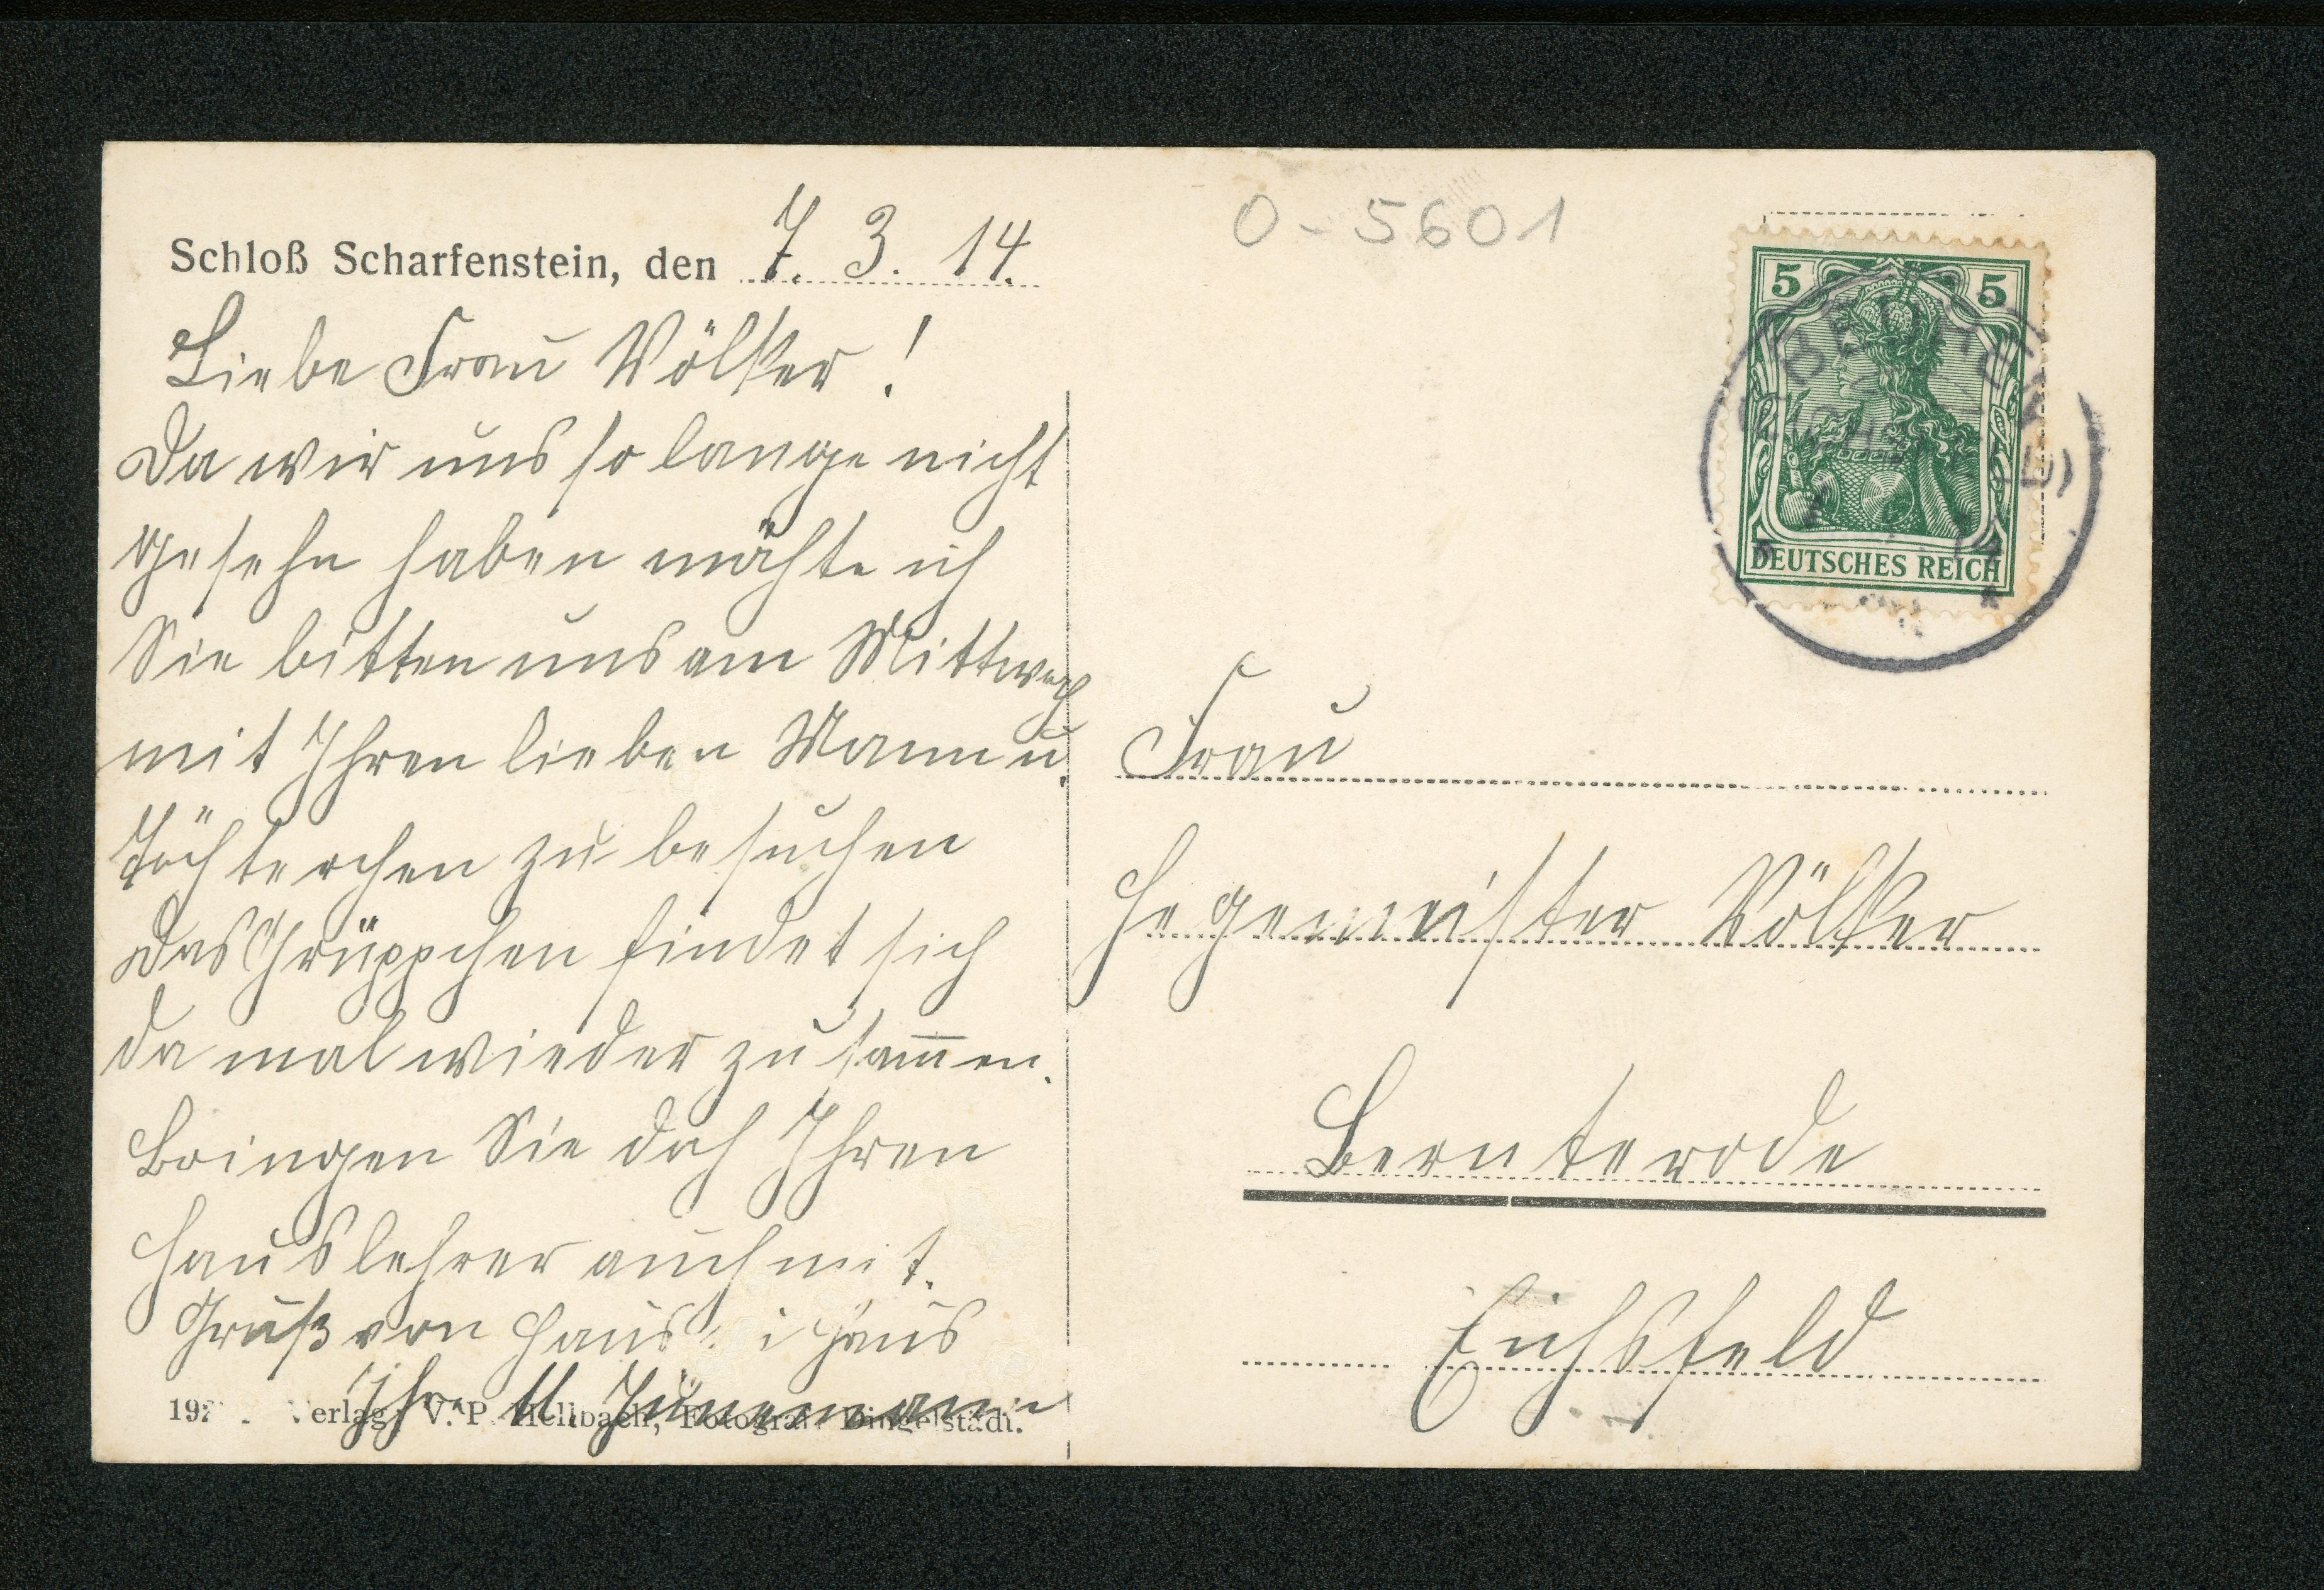 Schloß Scharfenstein, den 7. 3. 14.
Liebe Frau Völker!
Da wir uns so lange nicht
gesehn haben möchte ich
Sie bitten uns am Mittwoch
mit Ihren lieben Mann u.
Töchterchen zu besuchen
Das Grüppchen findet sich
da mal wieder zusam̅en.
Bringen Sie doch Ihren
Hauslehrer auch mit.
Gruß von Haus Haus
Ihr
Verlag: V. P. Hellbach, Fotograf, Dingelstädt.
0-5601
5 5
DEUTSCHES REICH
Frau
Hegemeister Völker
Bernterode
Eichsfeld